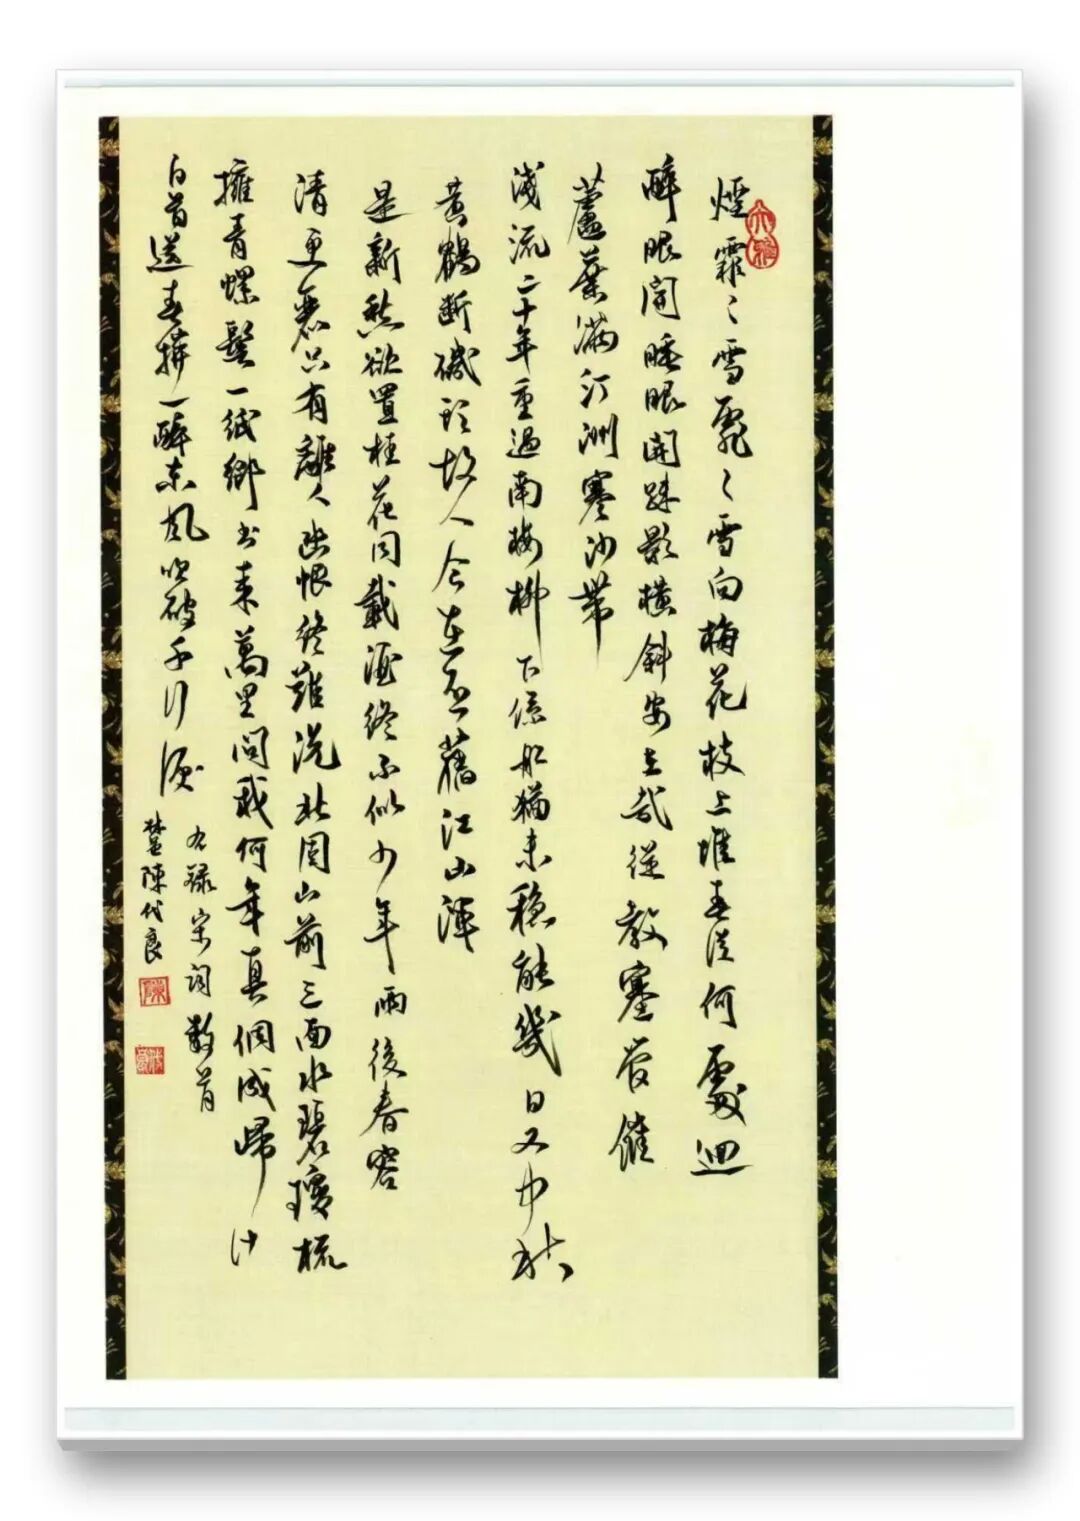 煙霏〻雪霏〻雪向梅花枝上堆春從何處迴
醉眼開睡眼開疎影橫斜安在哉從教塞管催
蘆葉滿汀洲寒沙帶
淺流二十年重過南樓柳下係船猶未穩能幾日又中秋
黃鶴斷磯頭故人今在否舊江山渾
是新愁欲買桂花同載酒終不似少年雨後春容
清更麗只有離人幽恨終難洗北固山前三面水碧瓊梳
擁青螺髻一紙鄉書來萬里問我何年真個成歸計
白首送春拚一醉東風吹破千行淚
右錄宋詞數首
陳代良